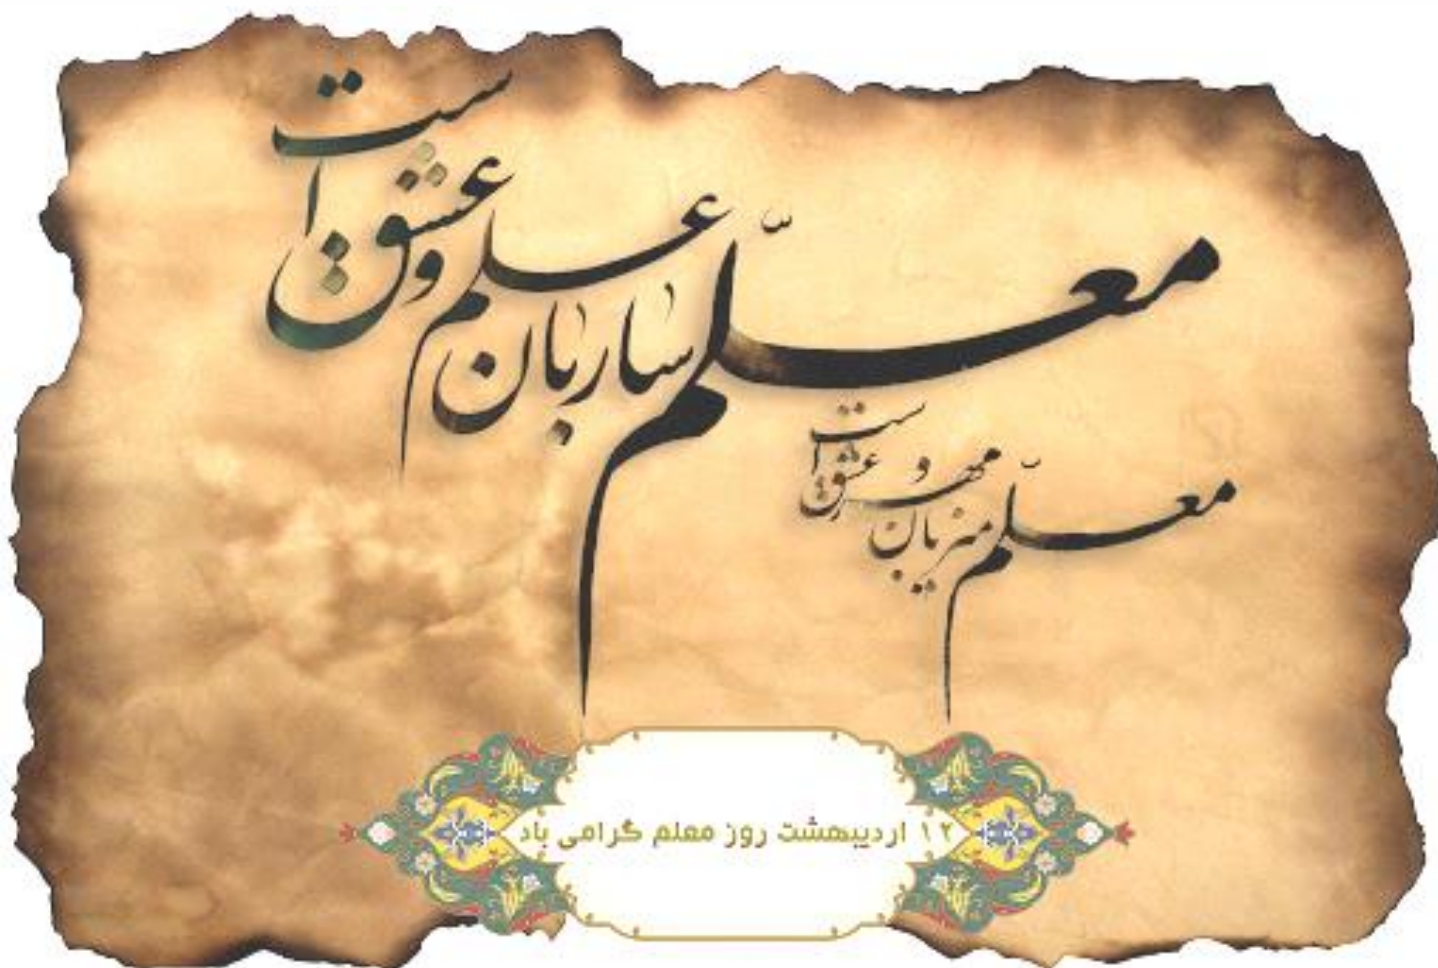 معلّم ساربان علم و عشق است
معلّم میزبان مهر و عشق است
۱۲ اردیبهشت روز معلم گرامی باد